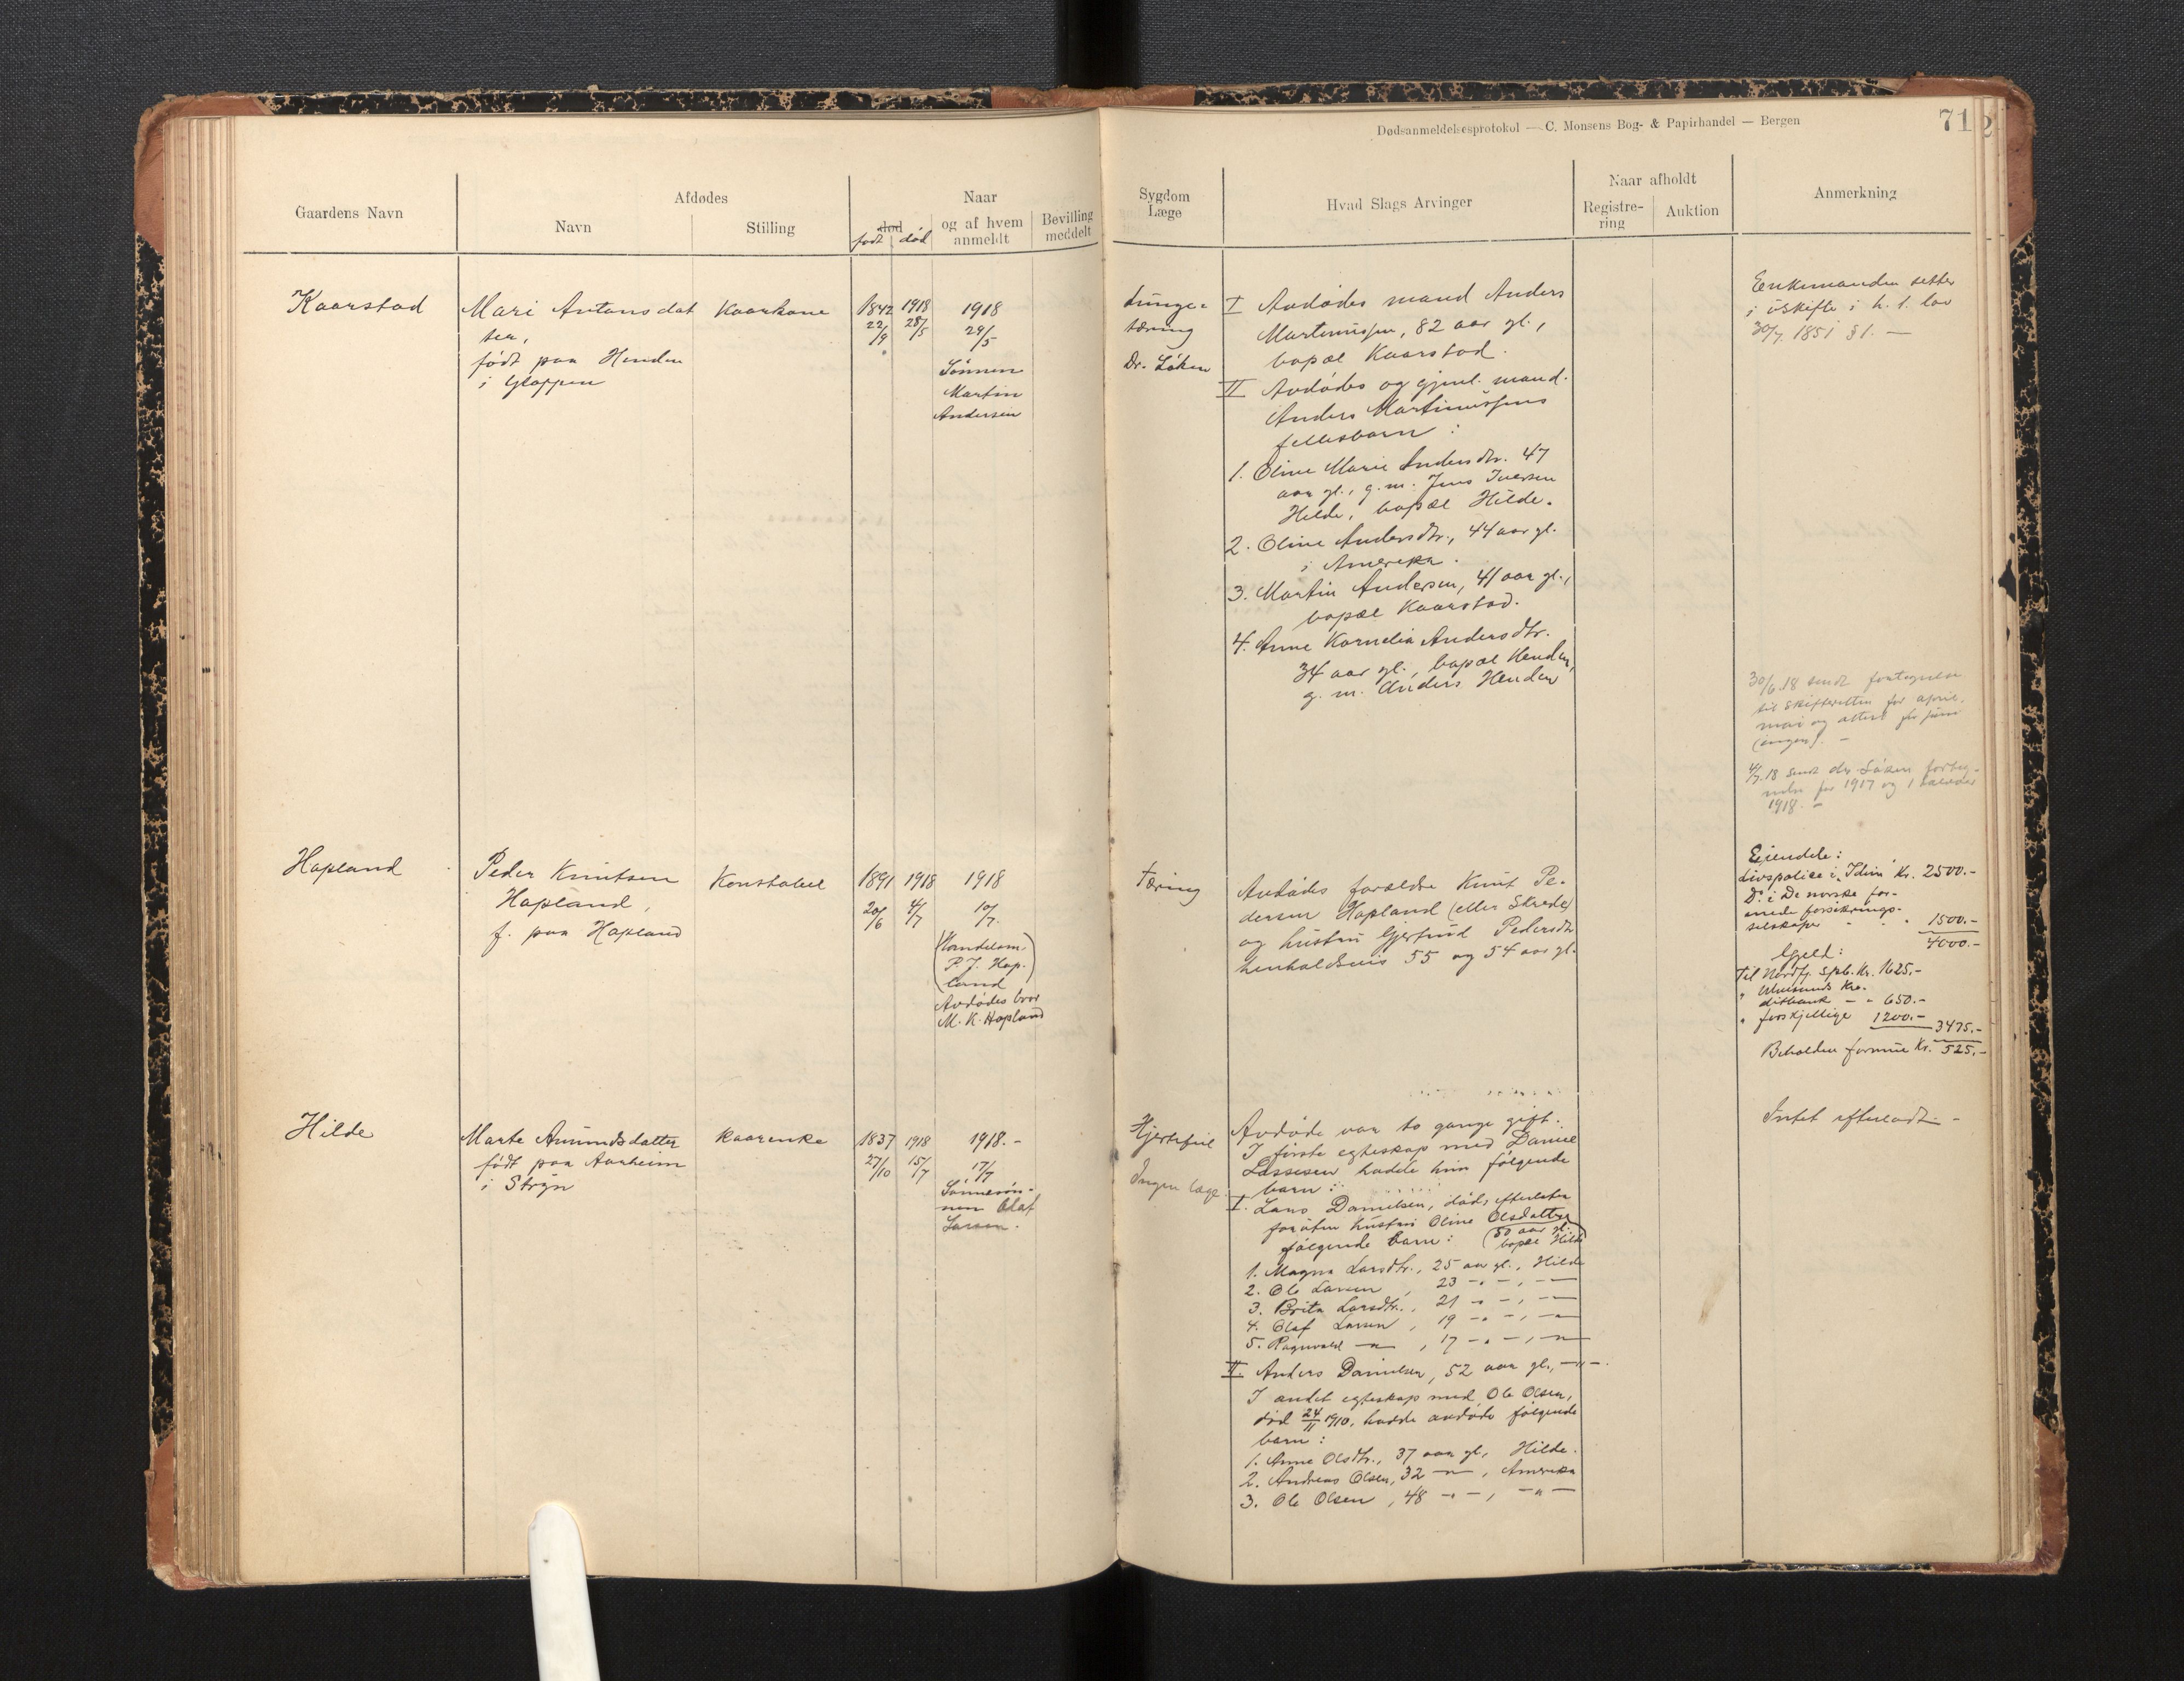 Dødsanmeldelsesprotokol — C. Monsens Bog- & Papirhandel — Bergen
71
2
Gaardens Navn
Afdødes
Navn
Stilling
Naar
død
født død
og af hvem
anmeldt
Bevilling
meddelt
Sygdom
Læge
Hvad Slags Arvinger
Naar afholdt
Registre-
ring
Auktion
Anmerkning
Kaarstad
Mari Antonsdat
ter,
født paa Henden
i Gloppen
Kaarkone
1842 22/9
1918 28/5
1918
29/5
Sønnen
Martin
Andersen
Lunge-
tæring
Dr. Løken
I Avdødes mand Anders
Martinussen, 82 aar gl.,
bopæl Kaarstad.
II Avdødes og gjenl. mand.
Anders Martinussens
fellesbarn :
1. Oline Marie Andersdtr. 47
aar gl., g. m. Jens Iversen
Hilde, bopæl Hilde.
2. Oline Andersdtr., 44 aar gl.
i Amerika.
3. Martin Andersen, 41 aar gl.,
bopæl Kaarstad.
4. Anne Kornelia Andersdtr.
34 aar gl., bopæl Henden,
g. m. Anders Henden
Enkemanden sitter
i uskifte i h. t. lov
30/7 1851 § 1. —
30/6.18 sendt fortegnelse
til skifteretten for april,
mai og attest for juni
(ingen). —
4/7.18 sendt dr. Løken forteg-
nelse for 1917 og 1 halvaar
1918. —
Hopland
Peder Knutsen
Hopland,
f. paa Hopland
Konstabel
1891 20/6
1918 4/7
1918
10/7.
(Handelsm.
P. J. Hop-
land)
Avdødes bror
M. K. Hopland
Tæring
Avdødes forældre Knut Pe-
dersen Hopland (eller Strede)
og hustru Gjertrud Pedersdtr
henholdsvis 55 og 54 aar gl.
Eiendele:
Livspolice i "Idun" Kr. 2500.-
Do i De norske for-
enede forsikrings-
selskaper - " 1500.-
4000.-
Gjeld:
Til Nordfj. Spb. Kr. 1625.-
" Aalesunds Kre-
ditbank — " 650.-
" forskjellige 1200.-
3475.-
Beholden formue Kr. 525.-
Hilde
Marte Amundsdatter
født paa Aarheim
i Stryn
Kaarenke
1837 27/10
1918 15/7
1918.-
17/7
Sønnesøn-
nen Olaf
Larsen.
Hjertefeil
Ingen læge.
Avdøde var to gange gift.
I første egteskap med Daniel
Lassesen hadde hun følgende
barn :
I. Lars Danielsen, død, efterlater
foruten hustru Oline Olsdatter
følgende barn : (50 aar gl.
bopæl Hilde)
1. Magna Larsdtr., 25 aar gl., Hilde
2. Ole Larsen , 23 -"- , —
3. Brita Larsdtr., 21 -"- , —
4. Olaf Larsen , 19 -"- , -"-
5. Ragnvald -"- , 17 -"- , -"-
II. Anders Danielsen, 52 aar gl., -"-.
I andet egteskap med Ole Olsen,
død 24/11 1910, hadde avdøde følgende
barn :
1. Anne Olsdtr., 37 aar gl., Hilde.
2. Andreas Olsen, 32 -"- , Amerika
3. Ole Olsen , 48 -"- , -"-
Intet efterladt. -